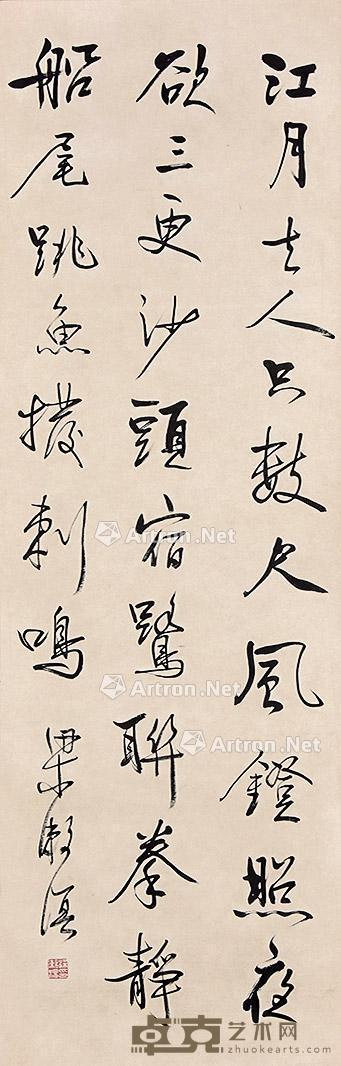 江月去人只數尺風鐙照夜
欲三更沙頭宿鷺聯拳靜
船尾跳魚撥剌鳴
梁漱溟
Artron.Net
Artron.Net
Artron.Net
Artron.Net
卓克艺术网
www.zhuokearts.com